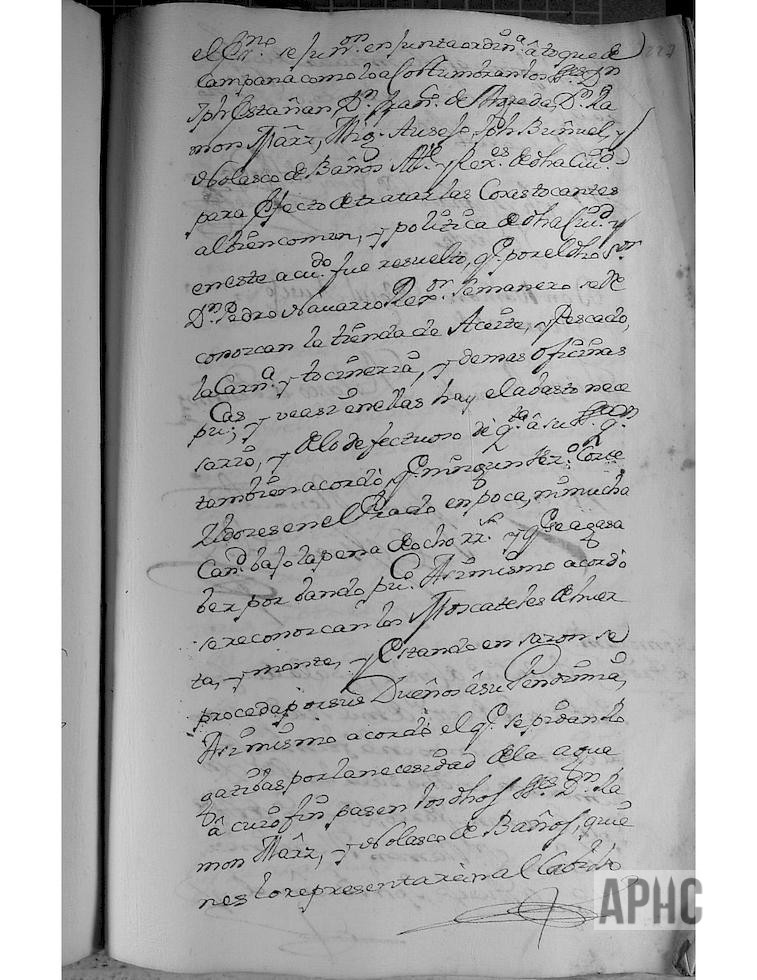 el Srno. se junron. en junta ordina. â toque de
Campana como lo a Costumbran los Sres. Dn
Jph Estañan, Dn. Franco. de Sobreda, Dn. Ra
mon Mârz, Mig. Ausejo, Joh Buñuel, y
Nolasco de Baños Alte. y Rexes. de dha Ciud.
para efecto de tratar las Cosas tocantes
al bien comun, y politica de dha Ciud. y
en este acudo. fue resuelto, q. por el dho Sor
Dn. Pedro Navarro Rexor. Semanero se Re
conozcan la tienda de Aceite, y Pescado,
la Carna. y tocineria, y demas oficinas
pucas; y vease en ellas hay el abasto nece
sario, y de lo defectuoso dè qta â su Sa.
tambien acordò, q. ningun Corte
en el Prado en poca, ni mucha
Cand. bajo la pena de ocho Rs. y q. se aga sa
ber por bando puco. Asi mismo acordò
se reconozcan los Moscateles de huer
ta, y monte, y Estando en sazon se
proceda por sus Dueños â su Vendimia,
Asi mismo acordò el q. se pidan
gatibas por la necesidad de la agua
â cuio fin pasen los dhos Sres. Dn. Ra
mon Mârz, y Nolasco de Baños, quie
nes lo representaràn al Cabildo
APHC